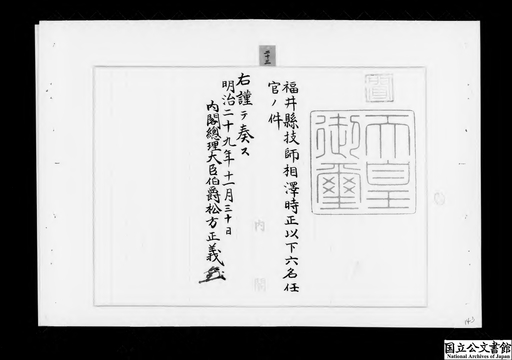 福井縣技師相澤時正以下六名任
官ノ件
右謹テ奏ス
明治二十九年十一月三十日
内閣總理大臣伯爵松方正義
天皇
御璽
内閣
国立公文書館
National Archives of Japan